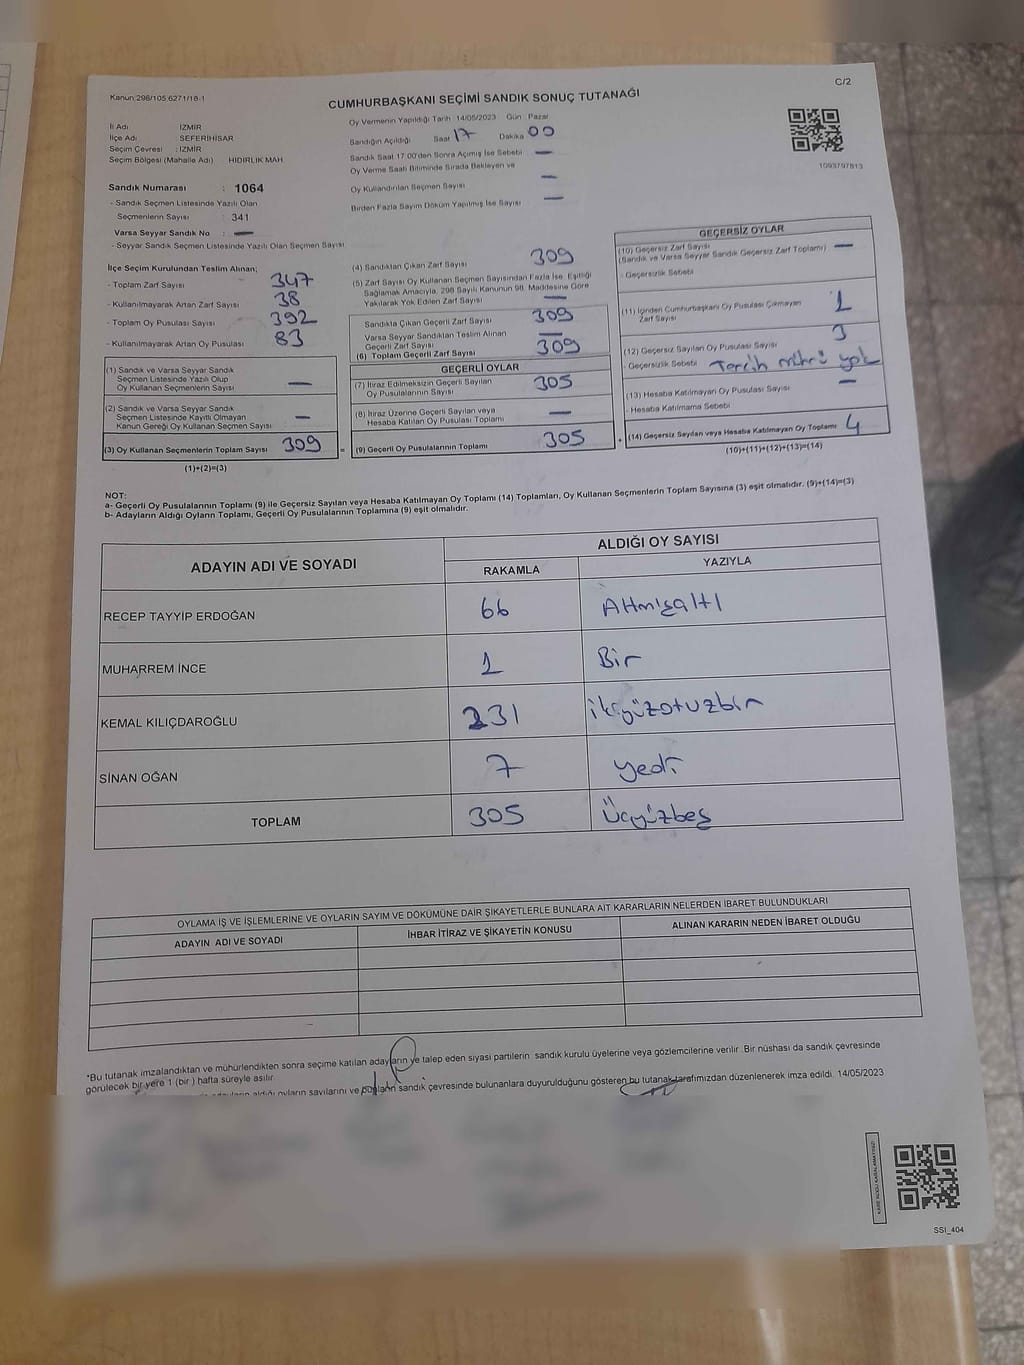 C/2
Kanun:298/105 6271/18-1
CUMHURBAŞKANI SEÇİMİ SANDIK SONUÇ TUTANAĞI
İl Adı : İZMİR
İlçe Adı : SEFERİHİSAR
Seçim Çevresi : İZMİR
Seçim Bölgesi (Mahalle Adı) HIDIRLIK MAH.
Oy Vermenin Yapıldığı Tarih 14/05/2023 Gün Pazar
Sandığın Açıldığı Saat 17 Dakika 00
Sandık Saat 17:00'den Sonra Açılmış İse Sebebi —
Oy Verme Saati Bitiminde Sırada Bekleyen ve
Oy Kullandırılan Seçmen Sayısı —
Birden Fazla Sayım Döküm Yapılmış İse Sayısı —
1093797813
Sandık Numarası : 1064
- Sandık Seçmen Listesinde Yazılı Olan
Seçmenlerin Sayısı : 341
Varsa Seyyar Sandık No : —
- Seyyar Sandık Seçmen Listesinde Yazılı Olan Seçmen Sayısı
İlçe Seçim Kurulundan Teslim Alınan;
- Toplam Zarf Sayısı : 347
- Kullanılmayarak Artan Zarf Sayısı : 38
- Toplam Oy Pusulası Sayısı : 392
- Kullanılmayarak Artan Oy Pusulası : 83
(1) Sandık ve Varsa Seyyar Sandık
Seçmen Listesinde Yazılı Olup
Oy Kullanan Seçmenlerin Sayısı —
(2) Sandık ve Varsa Seyyar Sandık
Seçmen Listesinde Kayıtlı Olmayan
Kanun Gereği Oy Kullanan Seçmen Sayısı —
(3) Oy Kullanan Seçmenlerin Toplam Sayısı 309 =
(1)+(2)=(3)
(4) Sandıktan Çıkan Zarf Sayısı 309
(5) Zarf Sayısı Oy Kullanan Seçmen Sayısından Fazla İse, Eşitliği
Sağlamak Amacıyla, 298 Sayılı Kanunun 98. Maddesine Göre
Yakılarak Yok Edilen Zarf Sayısı —
Sandıkta Çıkan Geçerli Zarf Sayısı 309
Varsa Seyyar Sandıktan Teslim Alınan
Geçerli Zarf Sayısı —
(6) Toplam Geçerli Zarf Sayısı 309
GEÇERLİ OYLAR
(7) İtiraz Edilmeksizin Geçerli Sayılan
Oy Pusulalarının Sayısı 305
(8) İtiraz Üzerine Geçerli Sayılan veya
Hesaba Katılan Oy Pusulası Toplamı —
(9) Geçerli Oy Pusulalarının Toplamı 305 +
GEÇERSİZ OYLAR
(10) Geçersiz Zarf Sayısı
(Sandık ve Varsa Seyyar Sandık Geçersiz Zarf Toplamı) —
- Geçersizlik Sebebi
(11) İçinden Cumhurbaşkanı Oy Pusulası Çıkmayan
Zarf Sayısı 1
(12) Geçersiz Sayılan Oy Pusulası Sayısı 3
- Geçersizlik Sebebi Tercih mührü yok
(13) Hesaba Katılmayan Oy Pusulası Sayısı —
- Hesaba Katılmama Sebebi
(14) Geçersiz Sayılan veya Hesaba Katılmayan Oy Toplamı 4
(10)+(11)+(12)+(13)=(14)
NOT:
a- Geçerli Oy Pusulalarının Toplamı (9) ile Geçersiz Sayılan veya Hesaba Katılmayan Oy Toplamı (14) Toplamları, Oy Kullanan Seçmenlerin Toplam Sayısına (3) eşit olmalıdır. (9)+(14)=(3)
b- Adayların Aldığı Oyların Toplamı, Geçerli Oy Pusulalarının Toplamına (9) eşit olmalıdır.
ADAYIN ADI VE SOYADI ALDIĞI OY SAYISI
RAKAMLA YAZIYLA
RECEP TAYYİP ERDOĞAN 66 Altmışaltı
MUHARREM İNCE 1 Bir
KEMAL KILIÇDAROĞLU 231 ikiyüzotuzbir
SİNAN OĞAN 7 yedi
TOPLAM 305 Üçyüzbeş
OYLAMA İŞ VE İŞLEMLERİNE VE OYLARIN SAYIM VE DÖKÜMÜNE DAİR ŞİKAYETLERLE BUNLARA AİT KARARLARIN NELERDEN İBARET BULUNDUKLARI
ADAYIN ADI VE SOYADI İHBAR İTİRAZ VE ŞİKAYETİN KONUSU ALINAN KARARIN NEDEN İBARET OLDUĞU
*Bu tutanak imzalandıktan ve mühürlendikten sonra seçime katılan adayların ve talep eden siyasi partilerin sandık kurulu üyelerine veya gözlemcilerine verilir. Bir nüshası da sandık çevresinde
görülecek bir yere 1 (bir) hafta süreyle asılır.
adayların aldığı oyların sayılarını ve bunların sandık çevresinde bulunanlara duyurulduğunu gösteren bu tutanak tarafımızdan düzenlenerek imza edildi. 14/05/2023
SSİ_404